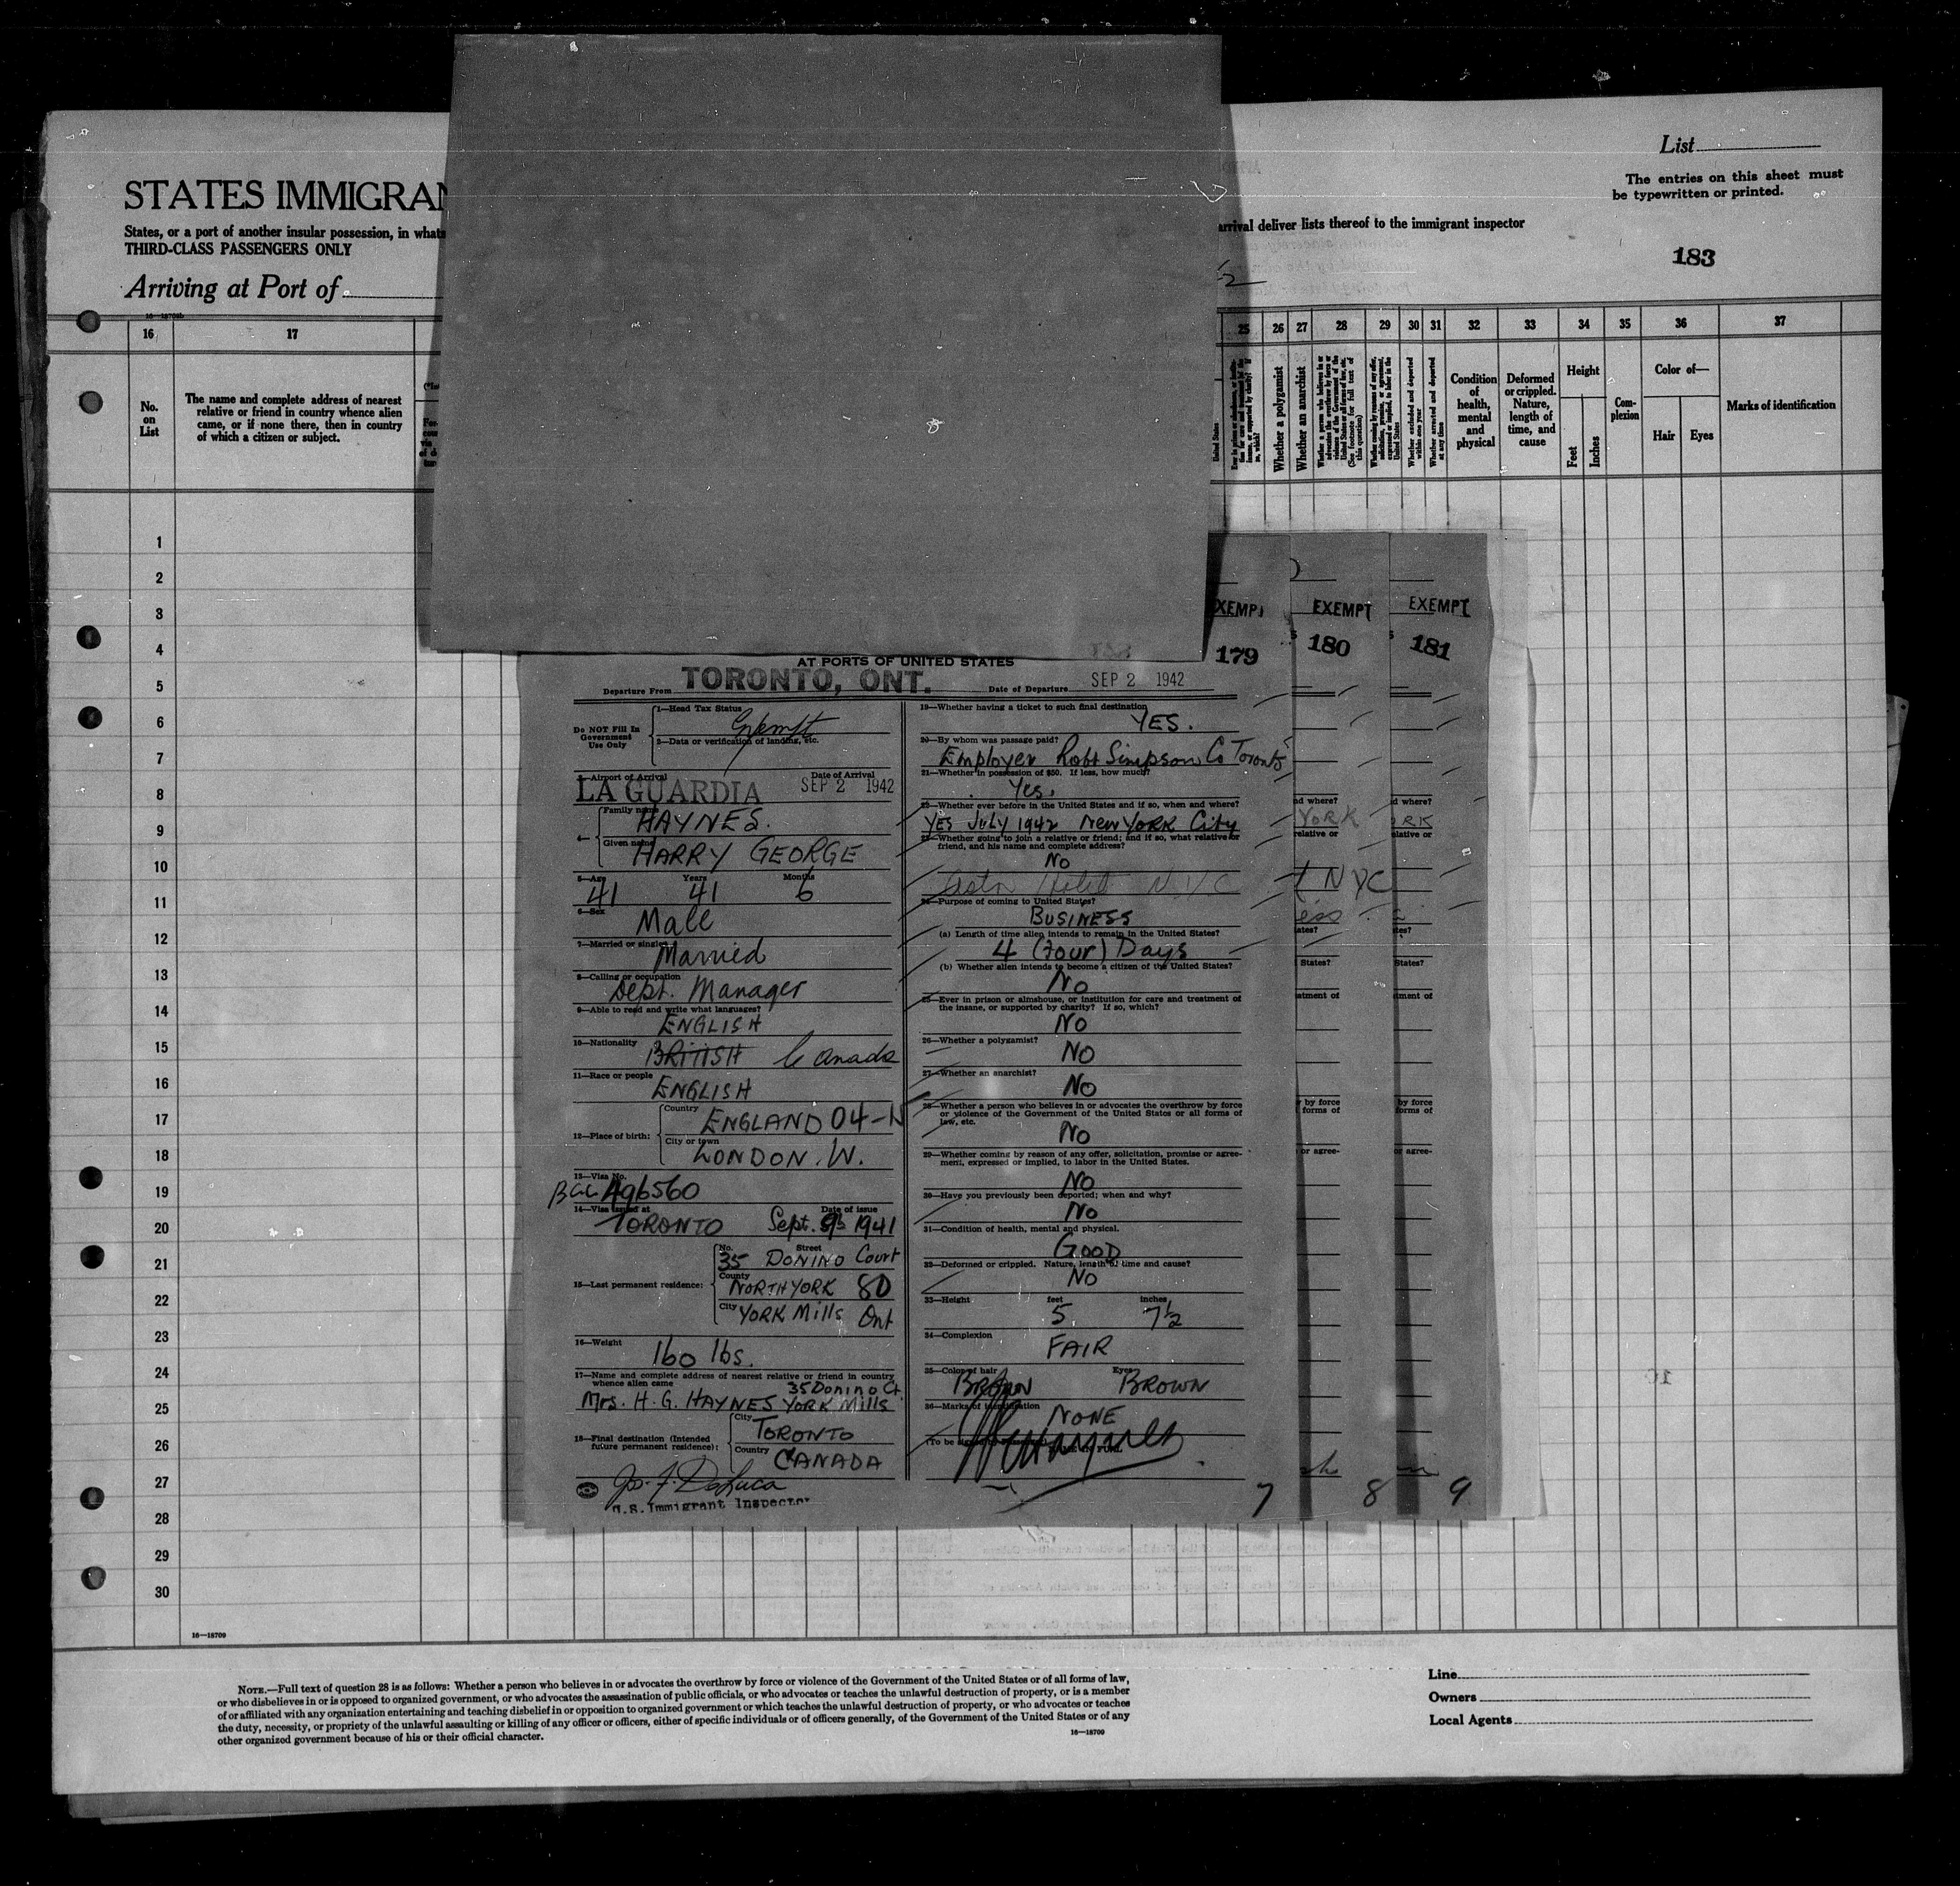 List
The entries on this sheet must
be typewritten or printed.
STATES IMMIGRAN
States, or a port of another insular possession, in what
arrival deliver lists thereof to the immigrant inspector
THIRD-CLASS PASSENGERS ONLY
183
Arriving at Port of
16 17
25 26 27 28 29 30 31 32 33 34 35 36 37
No. on List
The name and complete address of nearest
relative or friend in country whence alien
came, or if none there, then in country
of which a citizen or subject.
United States
Whether a polygamist
Whether an anarchist
Whether a person who believes in or advocates the overthrow by force or violence of the Government of the United States or all forms of law, etc. (See footnote for full text of this question)
Whether excluded and deported within one year
Whether arrested and deported at any time
Condition of health, mental and physical
Deformed or crippled. Nature, length of time, and cause
Height
Feet
Inches
Com-plexion
Color of—
Hair
Eyes
Marks of identification
1
2
3
4
5
6
7
8
9
10
11
12
13
14
15
16
17
18
19
20
21
22
23
24
25
26
27
28
29
30
16—18709
XEMPT
EXEMPT
EXEMPT
179
180
181
AT PORTS OF UNITED STATES
Departure From TORONTO, ONT. Date of Departure SEP 2 1942
Do NOT Fill In
Government
Use Only
1—Head Tax Status
Exempt
2—Data or verification of landing, etc.
3—Airport of Arrival Date of Arrival
LA GUARDIA SEP 2 1942
4— Family name
HAYNES.
Given name
HARRY GEORGE
5—Age Years Months
41 41 6
6—Sex
Male
7—Married or single
Married
8—Calling or occupation
Dept. Manager
9—Able to read and write what languages?
ENGLISH
10—Nationality
BRITISH Canada
11—Race or people
ENGLISH
12—Place of birth: Country
ENGLAND 04-N
City or town
LONDON. W.
13—Visa No.
A96560
14—Visa issued at Date of issue
TORONTO Sept. 1941
15—Last permanent residence: No. Street
35 DONINO Court
County
NORTH YORK 80
City YORK Mills Ont
16—Weight
160 lbs.
17—Name and complete address of nearest relative or friend in country
whence alien came 35 Donino Ct.
Mrs. H. G. HAYNES YORK Mills
18—Final destination (Intended
future permanent residence): City TORONTO
Country CANADA
Jos. J. DeLuca
U.S. Immigrant Inspector
19—Whether having a ticket to such final destination
YES.
20—By whom was passage paid?
Employer Robt Simpson Co Toronto
21—Whether in possession of $50. If less, how much?
Yes.
22—Whether ever before in the United States and if so, when and where?
YES July 1942 New York City
23—Whether going to join a relative or friend; and if so, what relative or
friend, and his name and complete address?
No
Astor Hotel N Y C
24—Purpose of coming to United States?
BUSINESS
(a) Length of time alien intends to remain in the United States?
4 (four) Days
(b) Whether alien intends to become a citizen of the United States?
No
25—Ever in prison or almshouse, or institution for care and treatment of
the insane, or supported by charity? If so, which?
No
26—Whether a polygamist?
No
27—Whether an anarchist?
No
28—Whether a person who believes in or advocates the overthrow by force
or violence of the Government of the United States or all forms of
law, etc.
No
29—Whether coming by reason of any offer, solicitation, promise or agree-
ment, expressed or implied, to labor in the United States.
No
30—Have you previously been deported; when and why?
No
31—Condition of health, mental and physical.
GOOD
32—Deformed or crippled. Nature, length of time and cause?
No
33—Height feet inches
5 7½
34—Complexion
FAIR
35—Color of hair Eyes
BROWN BROWN
36—Marks of identification
NONE
7
nd where?
YORK
relative or
NYC
ess
ates?
States?
atment of
by force
forms of
or agree-
8
d where?
ORK
elative or
tes?
States?
tment of
by force
forms of
or agree-
9
NOTE.—Full text of question 28 is as follows: Whether a person who believes in or advocates the overthrow by force or violence of the Government of the United States or of all forms of law,
or who disbelieves in or is opposed to organized government, or who advocates the assassination of public officials, or who advocates or teaches the unlawful destruction of property, or is a member
of or affiliated with any organization entertaining and teaching disbelief in or opposition to organized government or which teaches the unlawful destruction of property, or who advocates or teaches
the duty, necessity, or propriety of the unlawful assaulting or killing of any officer or officers, either of specific individuals or of officers generally, of the Government of the United States or of any
other organized government because of his or their official character.
16—18709
Line
Owners
Local Agents